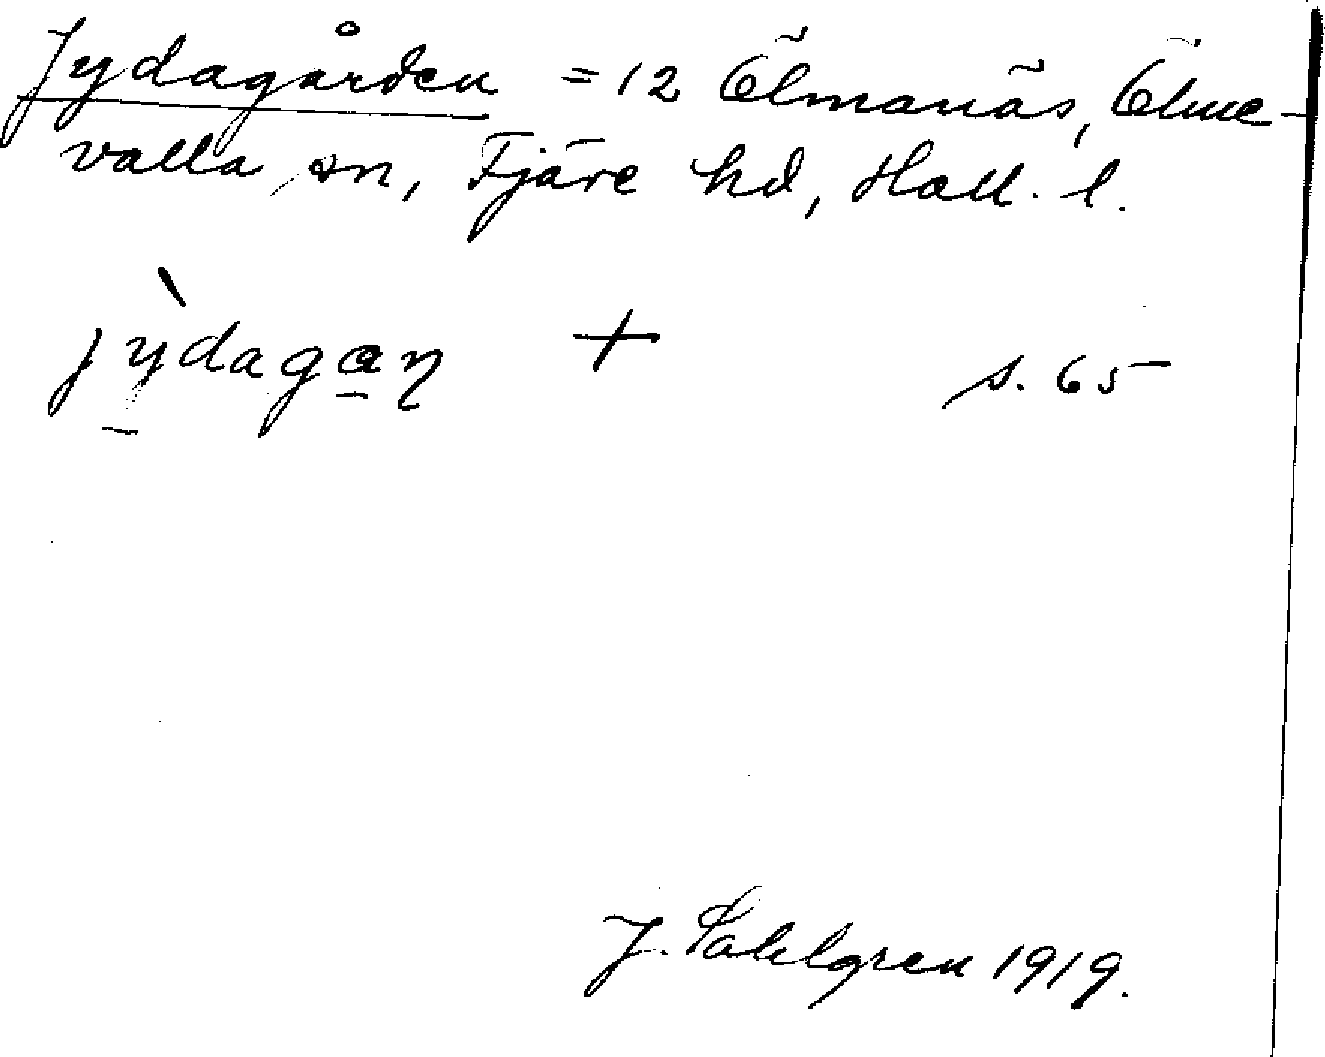 Jydagården = 12 Ölmanäs, Ölme-
valla sn, Fjäre hd, Hall. l.
jỳ̠daga̠ɳ + s. 65
J. Sahlgren 1919.